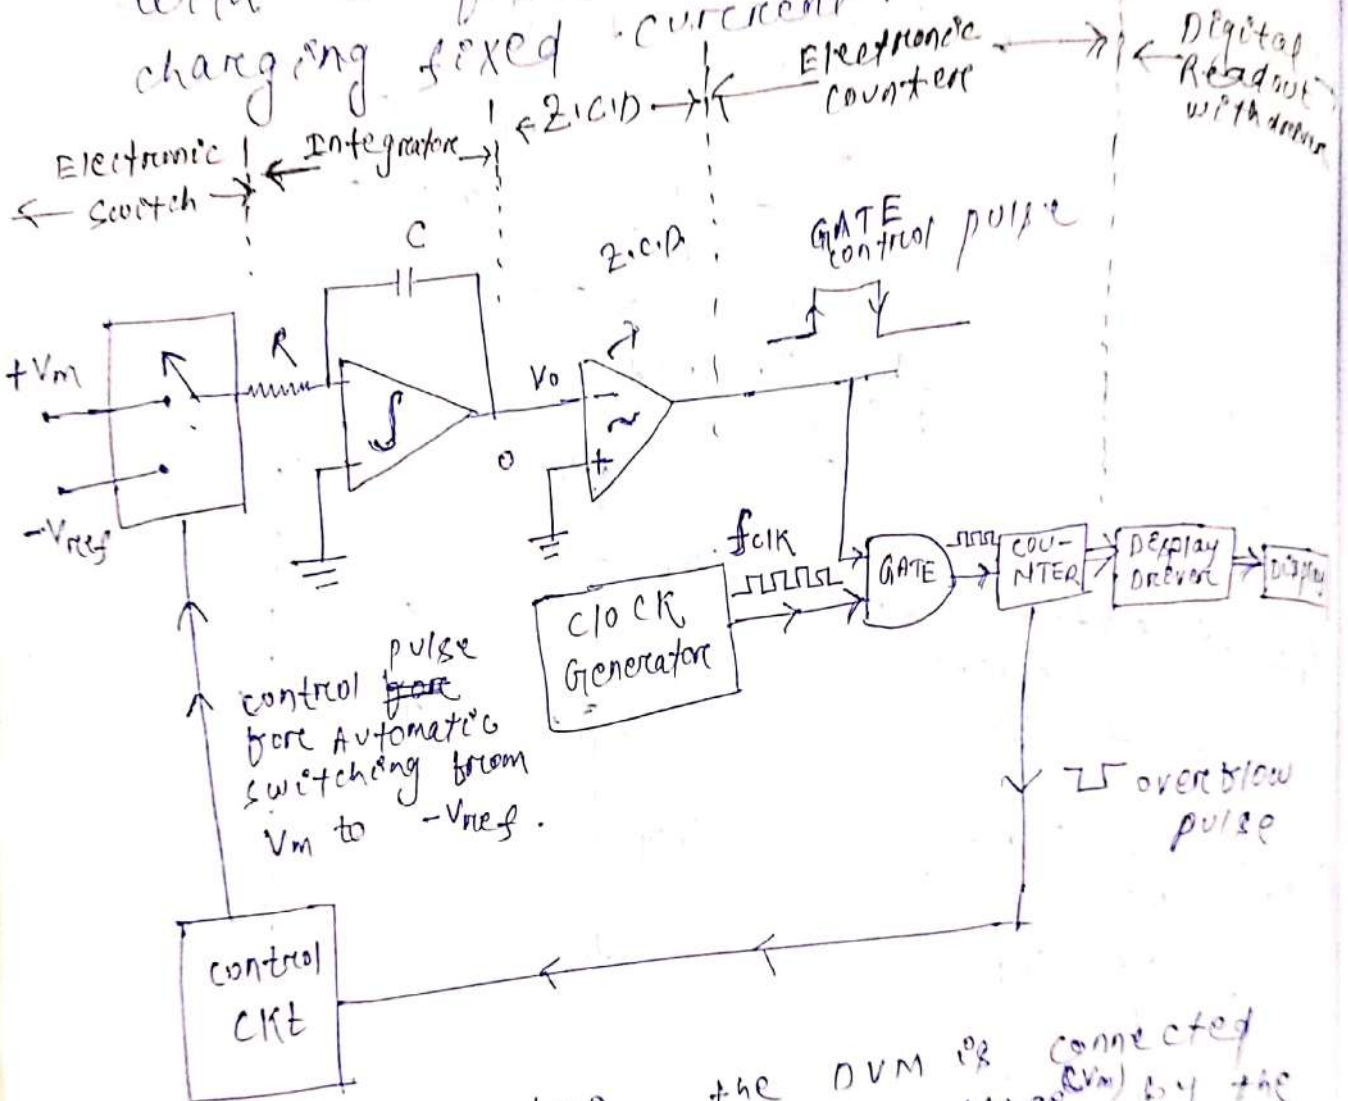 charging fixed current
Electronic
Switch
Integrator
Z.C.D
Electronic
Counter
Digital
Readout
with
C
Z.C.D.
GATE
control pulse
+Vm
R
∫
Vo
-
~
+
0
-Vref
fclk
CLOCK
Generator
GATE
COU-
NTER
Display
Driver
Display
control pulse
for Automatic
switching from
Vm to -Vref.
overflow
pulse
control
CKt
the DVM is connected
(Vm) by the